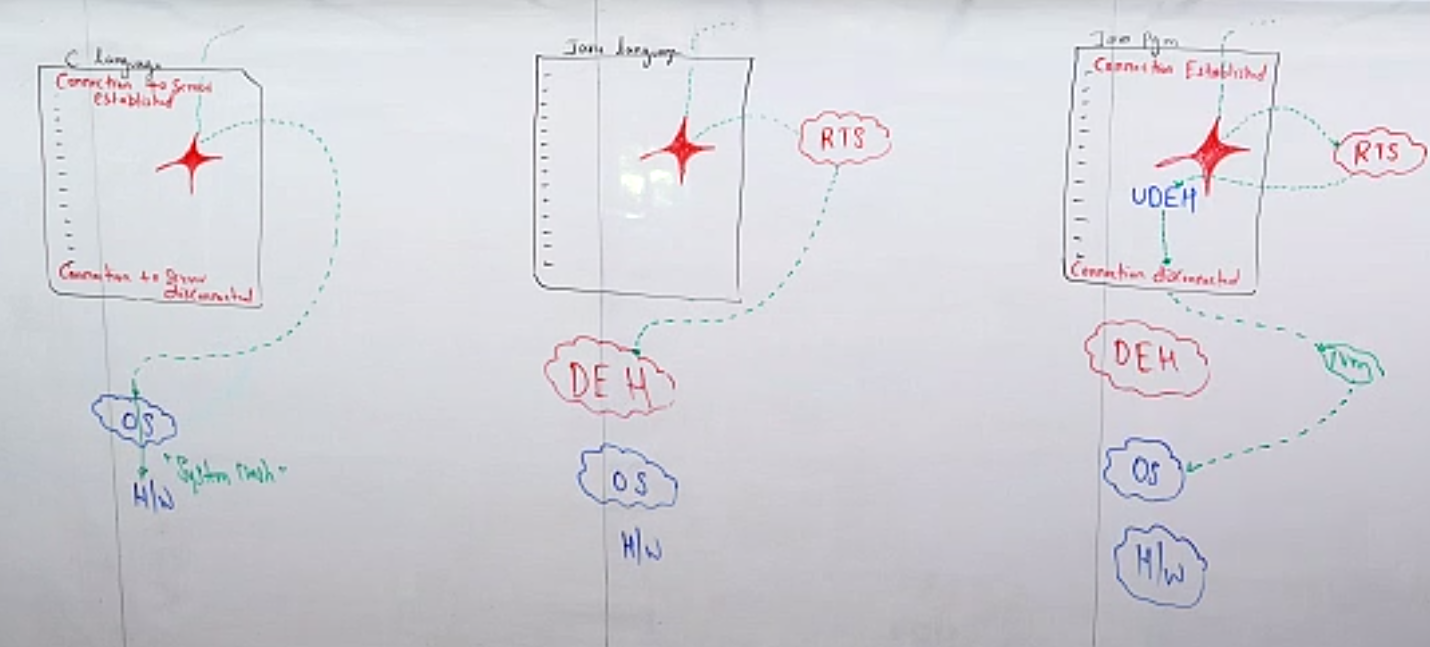 C language
Connection to Server
established
Connection to Server
disconnected
OS
"System crash"
H/W
Java language
RTS
DEH
OS
H/W
Java Pgm
Connection Established
RTS
UDEH
Connection disconnected
DEH
JVM
OS
H/W